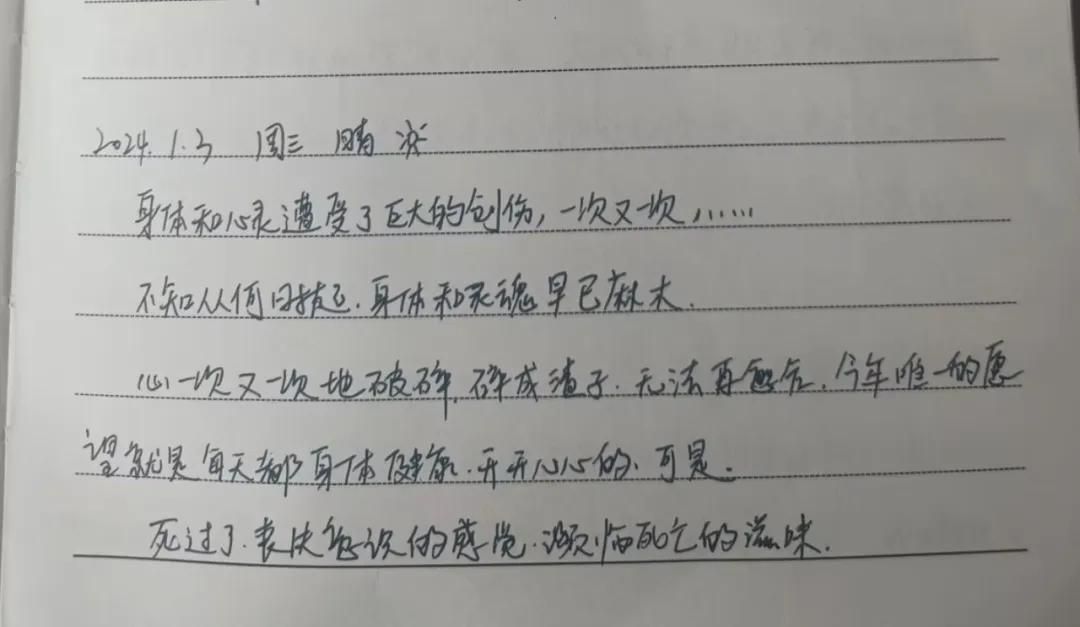 2024.1.3 周三 晴 冷
身体和心灵遭受了巨大的创伤,一次又一次,……
不知从何日起.身体和灵魂早已麻木.
心一次又一次地破碎,碎成渣子.无法再愈合.今年唯一的愿
望就是每天都身体健康.开开心心的.可是.
死过了.丧失意识的感觉.濒临死亡的滋味.